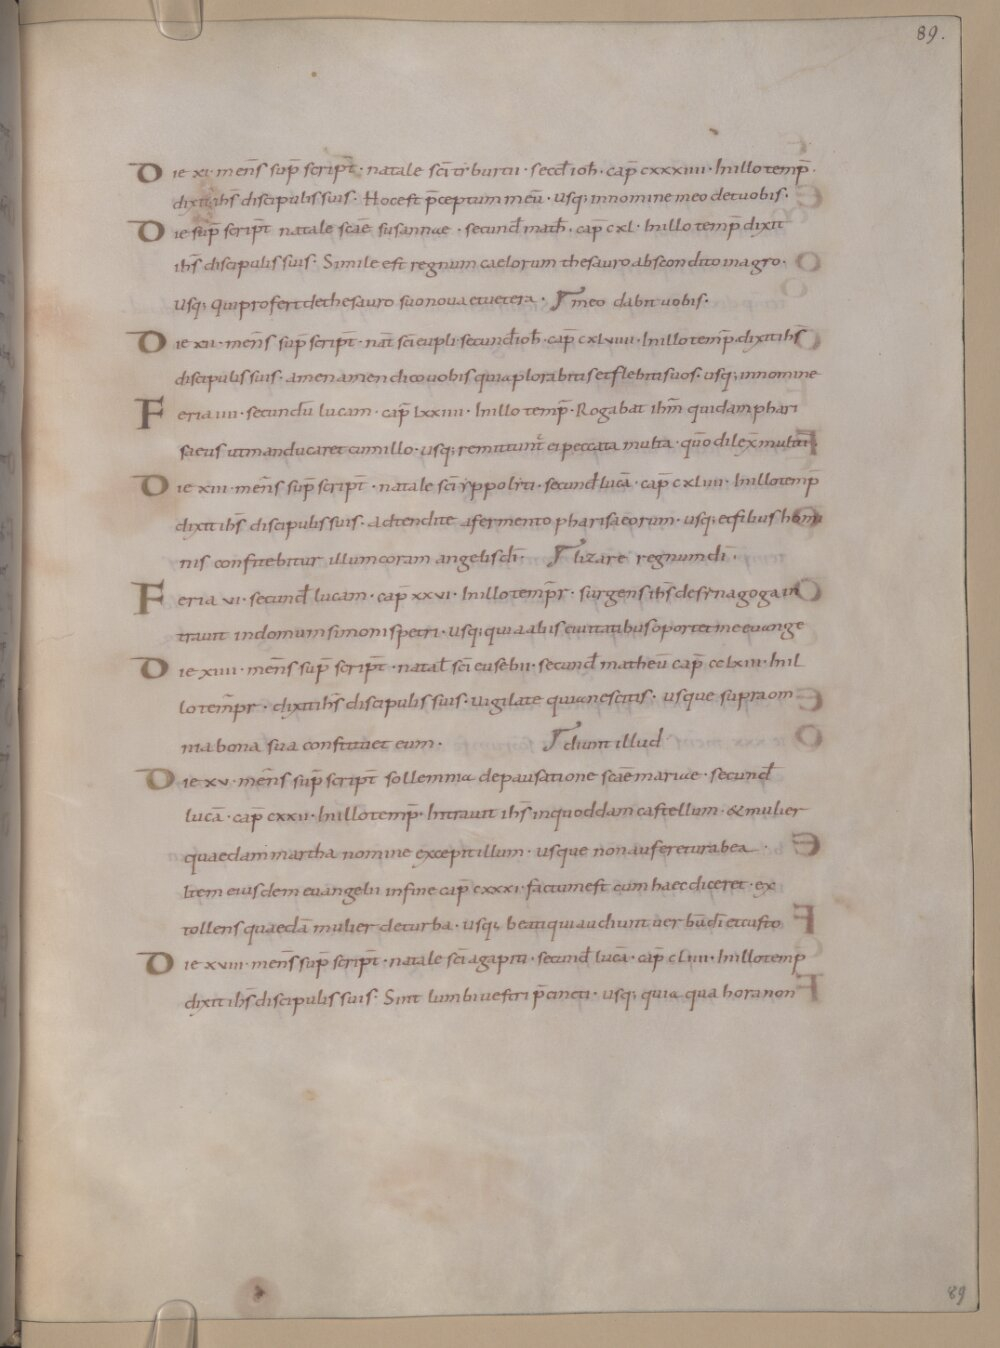 89.
Die xi· mens̄ sup̄ script̄· natale sc̄i tiburtii· secd̄ ioh̄· cap̄ cxxxiiii· Inillo temp̄·
dixit ih̄s discipulis suis· Hoc est p̄ceptum meū· usq; innomine meo det uobis·
Die sup̄ script̄ natale scāe susannae· secund̄ math̄· cap̄ cxl· Inillo temp̄ dixit
ih̄s discipulis suis· Simile est regnum caelorum thesauro abscondito in agro·
usq; qui profert de thesauro suo noua et uetera· meo dabit uobis·
Die xii· mens̄ sup̄ script̄· nat̄ sc̄i eupli· secund̄ ioh̄· cap̄ cxlviiii· Inillo temp̄ dixit ih̄s
discipulis suis· amen amen dico uobis quia plorabitis et flebitis uos· usq; innomine
Feria iiii· secundū lucam· cap̄ lxxiiii· Inillo temp̄· Rogabat ih̄m quidam phari
saeus ut manducaret cum illo· usq; remittunt̄ ei peccata multa· qūo dilex̄ multū
Die xiii· mens̄ sup̄ script̄· natale sc̄i yppolyti· secund̄ lucā· cap̄ cxliii· Inillo temp̄
dixit ih̄s discipulis suis· adtendite a fermento pharisaeorum· usq; et filius homi
nis confitebitur illum coram angelis dī· lizare regnum dī·
Feria vi· secund̄ lucam· cap̄ xxvi· Inillo temp̄r· surgens ih̄s de synagoga in
trauit in domum simonis petri· usq; quia aliis ciuitatibus oportet me euange
Die xiiii· mens̄ sup̄ script̄· natal̄ sc̄i eusebii· secund̄ matheū cap̄ cclxiii· Inil
lo temp̄r· dixit ih̄s discipulis suis· uigilate quia nescitis· usque supra om
nia bona sua constituet eum· diunt illud
Die xv· mens̄ sup̄ script̄ sollemnia de pausatione scāe mariae· secund̄
lucā· cap̄ cxxii· Inillo temp̄· Intrauit ih̄s in quoddam castellum· & mulier
quaedam martha nomine excepit illum· usque non auferetur ab ea·
Item eiusdem euangelii in fine cap̄ cxxxi· factum est cum haec diceret· ex
tollens quaedā mulier de turba· usq; beati qui audiunt uerbū dī et custo
Die xviii· mens̄ sup̄ script̄· natale sc̄i agapiti· secund̄ lucā· cap̄ cliii· Inillo temp̄
dixit ih̄s discipulis suis· Sint lumbi uestri p̄cincti· usq; quia qua hora non
89